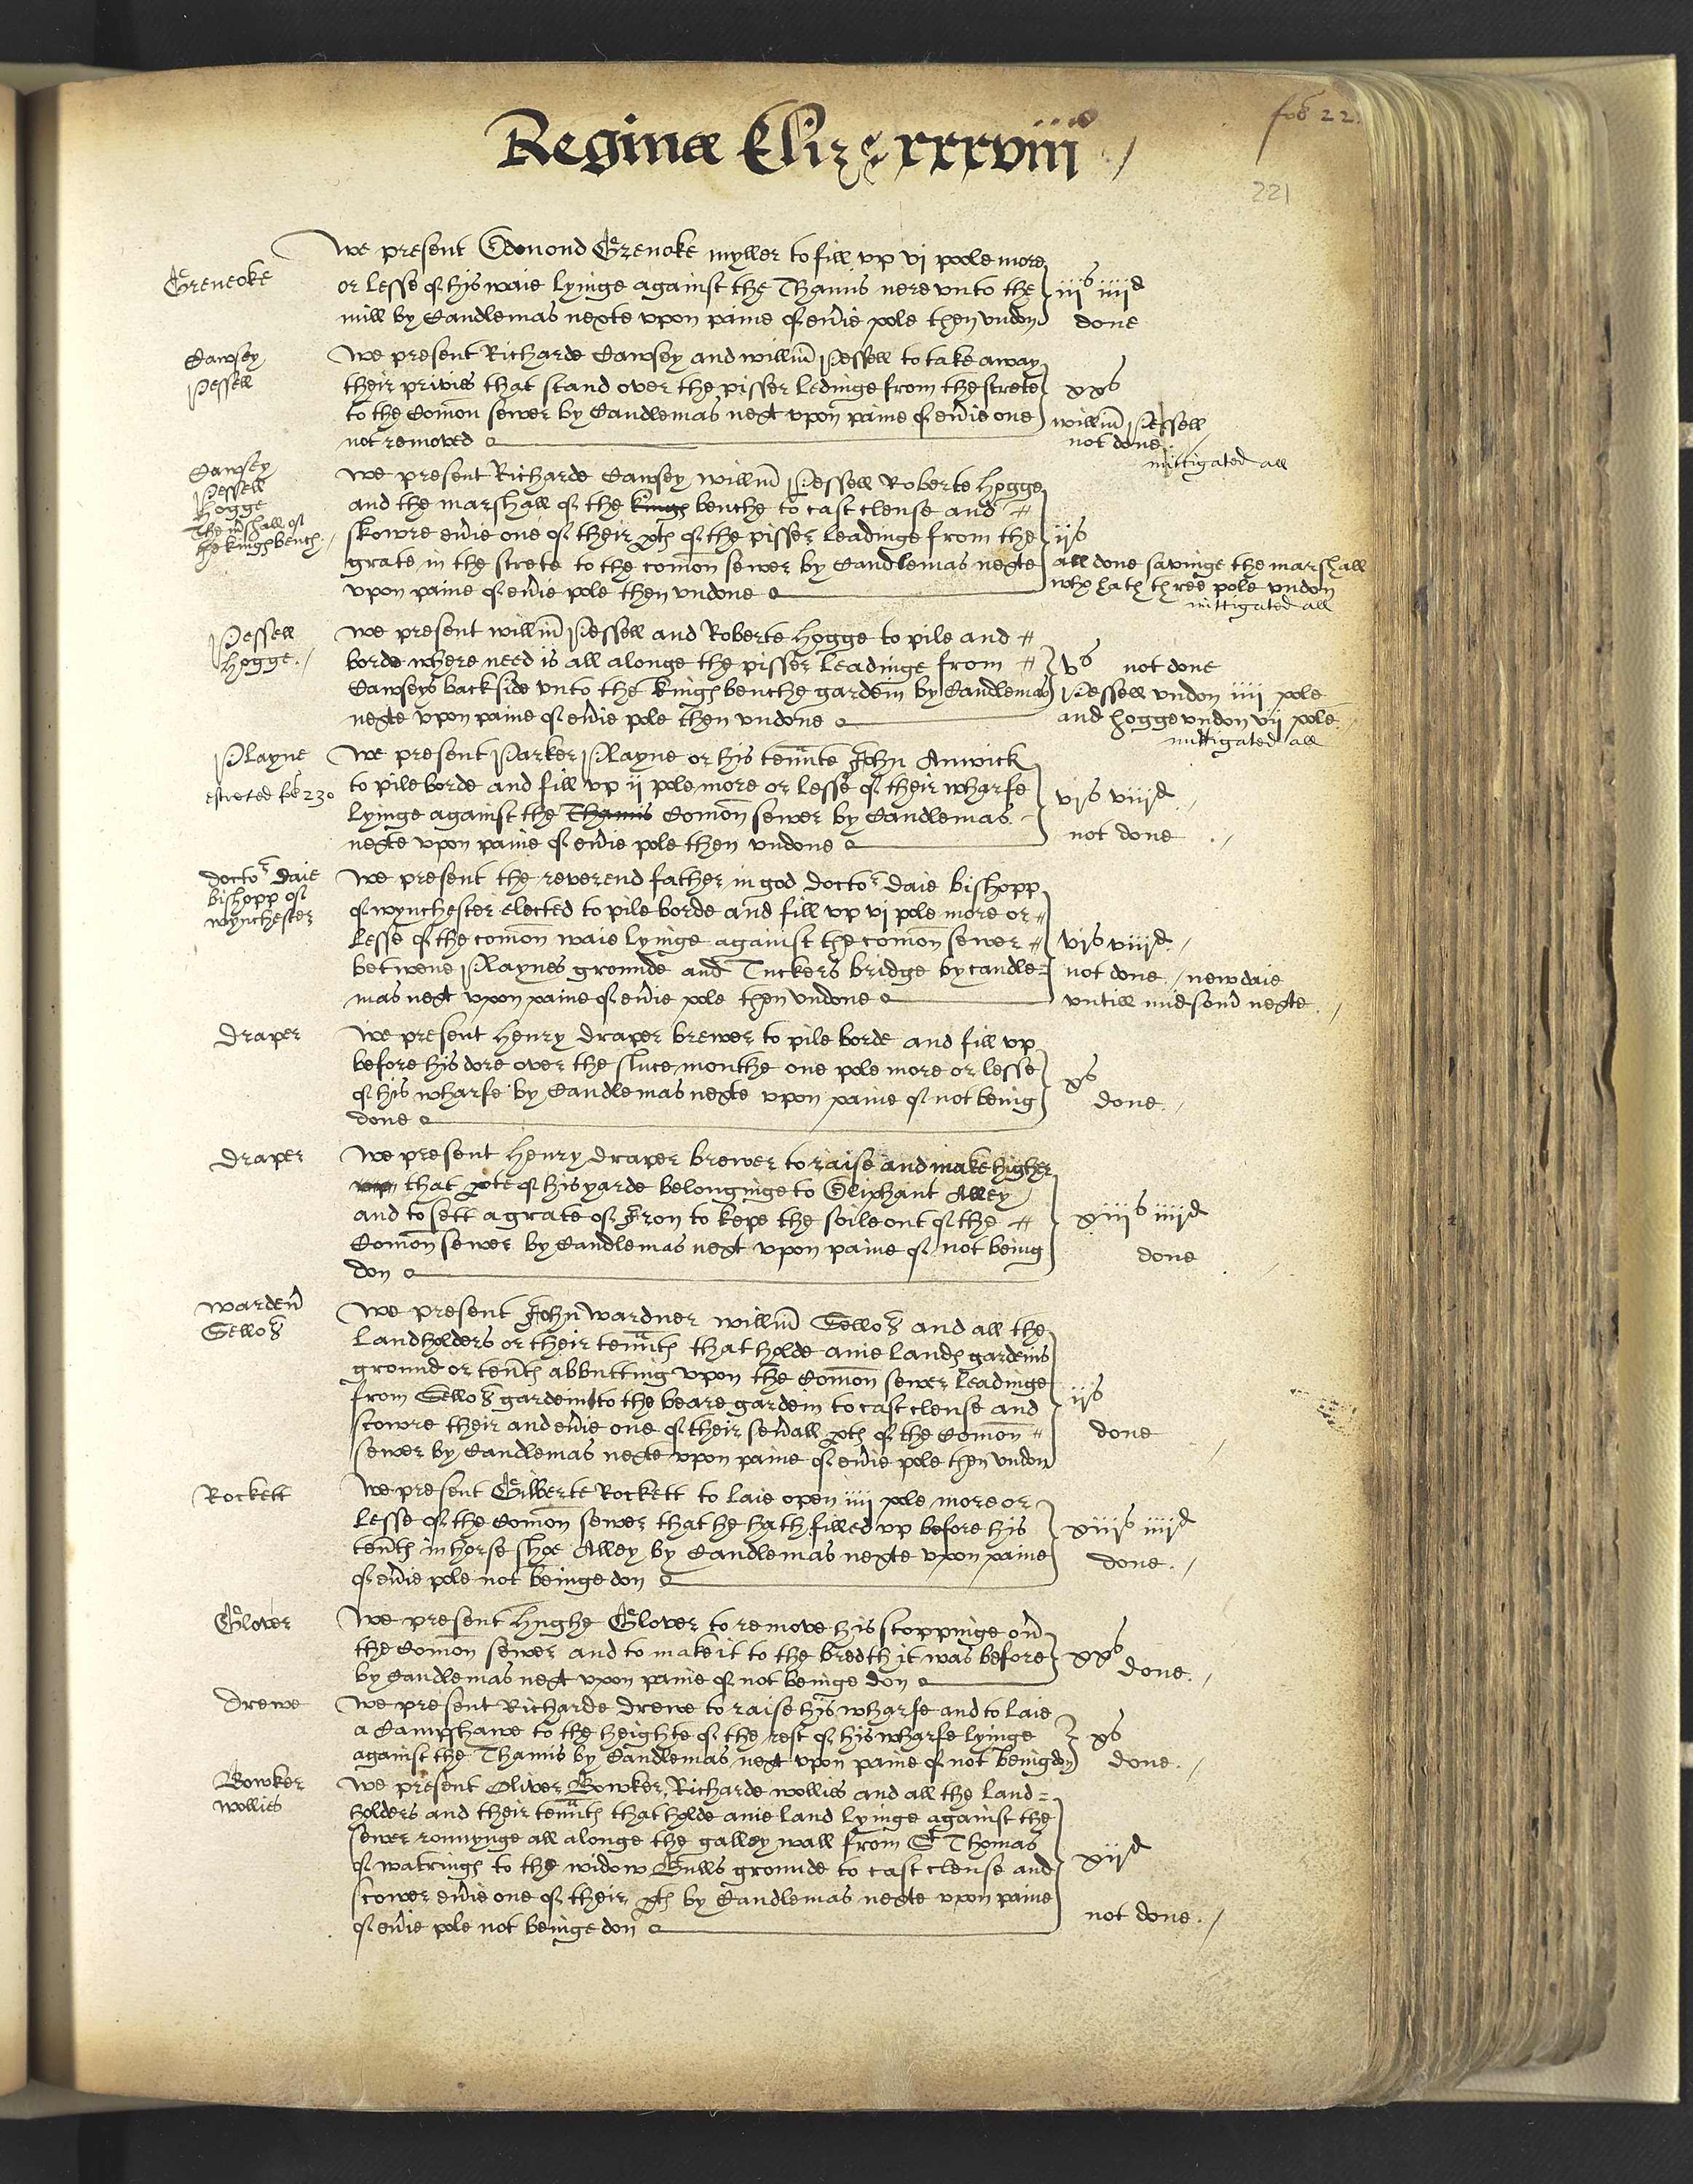 Reginæ Eliz: xxxviii°
fo: 22
221
Greneoke
We present Edmond Grenoke myller to fill vp vj poole more
or lesse of his waie lyinge against the Thamis nere vnto the
mill by Candlemas nexte vpon paine of eũie pole then vndon
iijs iiijd
done
Cawsey
Pessell
We present Richarde Cawsey and willm̃ Pessell to take away
their privies that stand over the pisser ledinge from the strete
to the Com̃on sewer by Candlemas next vpon paine of eũie one
not removed
xxs
willm̃ Pessell
not done
mittigated all
Cawsey
Pessell
Hogge
The m̃shall of
the kings bench
We present Richarde Cawsey willm̃ Pessell Roberte Hogge
and the marshall of the kings benche to cast clense and
skowre eũie one of their pts of the pisser leadinge from the
grate in the strete to the com̃on sewer by Candlemas nexte
vpon paine of eũie pole then vndone
ijs
all done savinge the marshall
who hath three pole vndon
mittigated all
Pessell
Hogge
We present willm̃ Pessell and Roberte Hogge to pile and
borde where need is all alonge the pisser leadinge from
Cawseys backside vnto the kings benche gardein by Candlemas
nexte vpon paine of eũie pole then vndone
vs not done
Pessell vndon iiij pole
and Hogge vndon vij pole
mittigated all
Playne
estreted fo 230
We present Parker Playne or his tennte John Anwick
to pile borde and fill vp ij pole more or lesse of their wharfe
lyinge against the Thamis Com̃on sewer by Candlemas
nexte vpon paine of eũie pole then vndone
vjs viijd
not done
Doctor Daie
bishopp of
wynchester
We present the reverend father in god Doctor Daie bishopp
of wynchester elected to pile borde and fill vp vj pole more or
lesse of the com̃on waie lyinge against the com̃on sewer
betwene Playnes grounde and Tuckers bridge by candle=
mas next vpon paine of eũie pole then vndone
vjs viijd
not done / new daie
vntill midsom̃ nexte
Draper
We present Henry Draper brewer to pile borde and fill vp
before his dore over the sluce mouthe one pole more or lesse
of his wharfe by Candlemas nexte vpon paine of not being
done
xs
done
Draper
We present Henry Draper brewer to raise and make higher
vp that pte of his yarde belonginge to Oliphant Alley
and to sett a grate of Iron to kepe the soile out of the
Com̃on sewer by Candlemas next vpon paine of not being
don
xiijs iiijd
done
Warden̄
Sellos
We present John wardner willm̃ Sellos and all the
Landholders or their tennts that holde anie lands gardeins
ground or tents abbutting vpon the Com̃on sewer leadinge
from Sellos gardein to the beare gardein to cast clense and
scowre their and eũie one of their seũall pts of the Com̃on
sewer by Candlemas nexte vpon paine of eũie pole then vndon
ijs
done
Rockett
We present Gilberte Rockett to laie open iiij pole more or
lesse of the Com̃on sewer that he hath filled vp before his
tents in horse shoe Alley by Candlemas nexte vpon paine
of eũie pole not beinge don
xiijs iiijd
done
Glover
We present Hughe Glover to remove his stoppinge oũ
the Com̃on sewer and to make it to the bredth it was before
by Candlemas next vpon paine of not beinge don
xxs
done
Drewe
We present Richarde Drewe to raise his wharfe and to laie
a Campshawe to the heighte of the rest of his wharfe lyinge
against the Thamis by Candlemas next vpon paine of not being don
xs
done
Bowker
Wollies
We present Oliver Bowker, Richarde wollies and all the land=
holders and their tennts that holde anie land lyinge against the
sewer ronnynge all alonge the galley wall from St Thomas
of watrings to the widow Bulls grounde to cast clense and
scower eũie one of their pts by Candlemas nexte vpon paine
of eũie pole not beinge don
xijd
not done